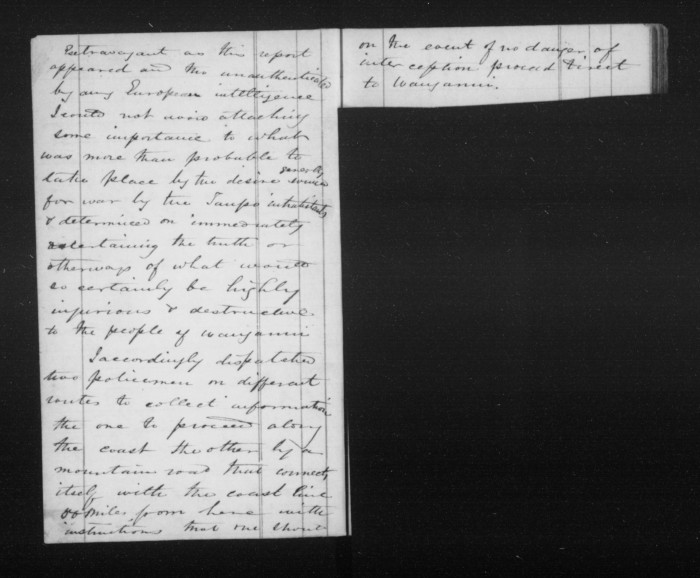 Extravagant as this report
appeared and tho unauthenticated
by any European intelligence
I could not avoid attaching
some importance to what
was more than probable to
take place by the desire generally
for war by the Taupo inhabitants
& determined on immediately
ascertaining the truth or
otherways of what would
so certainly be highly
injurious & destructive
to the people of Wanganui
I accordingly dispatched
two policemen on different
routes to collect information
the one to proceed along
the coast the other by a
mountain road that connects
itself with the coast line
miles from here with
instructions that one should
on the event of no danger of
interception proceed direct
to Wanganui.